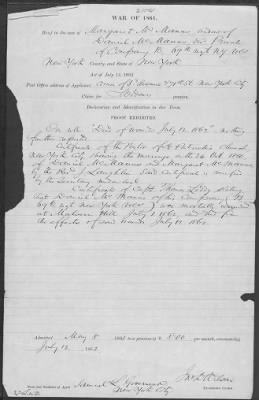 WAR OF 1861.
Brief in the case of Margaret McManus widow of
Dennis McManus dec Private
of Company B 69th regt N.Y. Vols
New York County, and State of New York
Act of July 14, 1862.
Post Office address of Applicant, 7th St New York City
Claim for Pension
Declaration and Identification in due form.
PROOF EXHIBITED.
"Died of wounds July 12. 1862." nothing
further reported
Certificate of the Pastor of St Patricks Church
New York City showing the marriage on the 26 Oct
of Dennis McManus and Margaret
by the Revd J. Loughlin Said Certificate is verified
by the
Certificate of Capt Thomas Leddy stating
that Dennis McManus of his Company B
69th regt New York Vols was mortally wounded
at Malvern Hill July 1 1862, and died from
the effects of said wounds July 12. 1862.
Admitted May 8 1863 to a pension of $8.00 per month, commencing
July 12. 1862.
Examining Clerk.
Name and Residence of Agent, Samuel L.
New York City